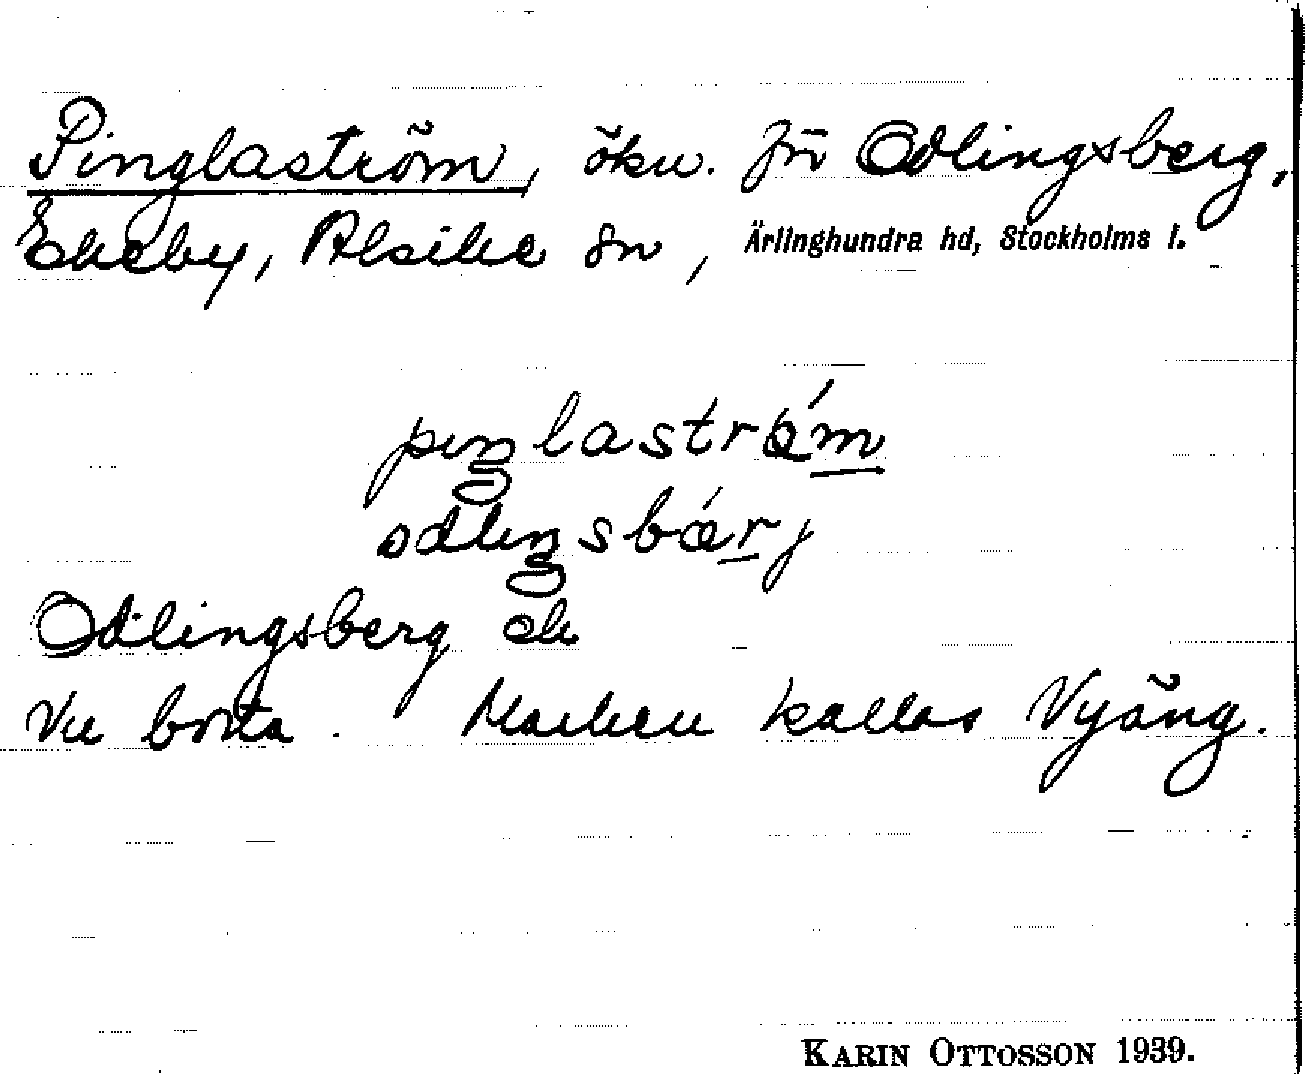 Pinglaström, ökn. för Odlingsberg,
Ekeby, Alsike sn, Ärlinghundra hd, Stockholms l.
pıŋlastrǿm
odlıŋsbǽrj
Odlingsberg ek
Nu borta. Marken kallas Vyäng.
KARIN OTTOSSON 1939.